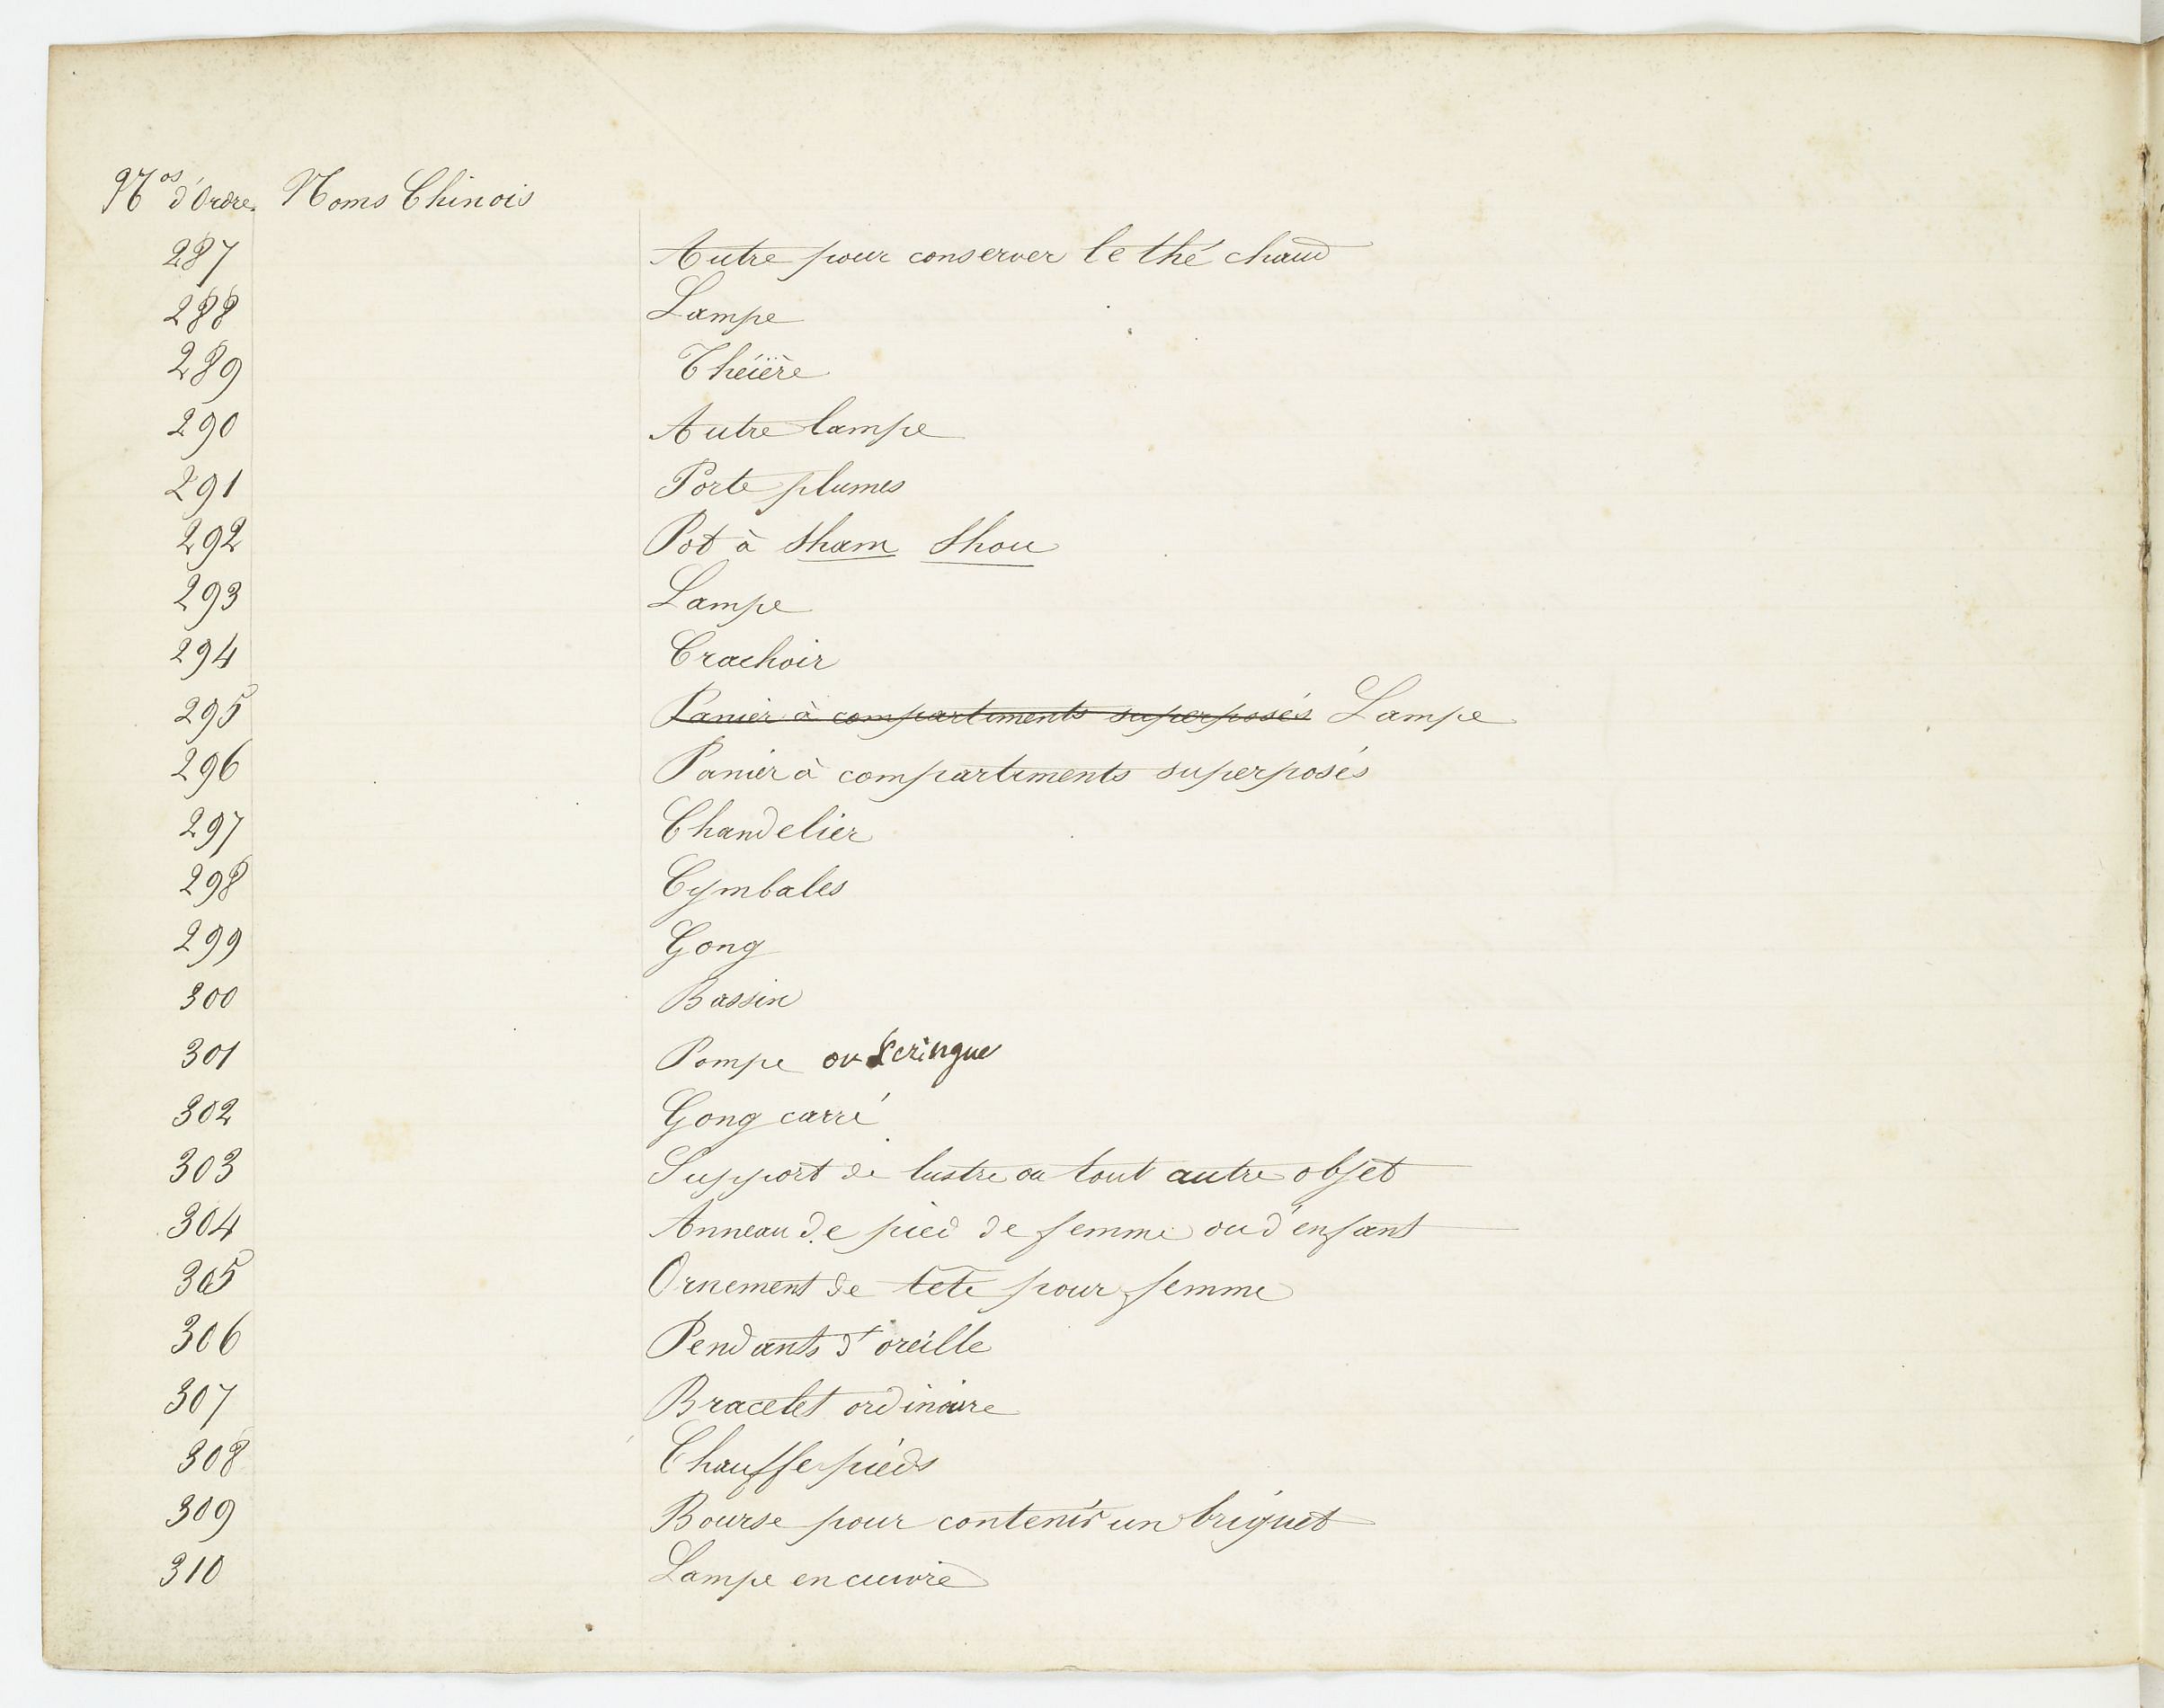 Nos d'Ordre. Noms Chinois
287 Autre pour conserver le thé chaud
288 Lampe
289 Théïère
290 Autre lampe
291 Porte plumes
292 Pot à Sham Shou
293 Lampe
294 Crachoir
295 Panier à compartiments superposés Lampe
296 Panier à compartiments superposés
297 Chandelier
298 Cymbales
299 Gong
300 Bassin
301 Pompe ou Seringue
302 Gong carré
303 Support de lustre ou tout autre objet
304 Anneau de pied de femme ou d'enfant
305 Ornement de tête pour femme
306 Pendants d'oreille
307 Bracelet ordinaire
308 Chauffe pieds
309 Bourse pour contenir un briquet
310 Lampe en cuivre